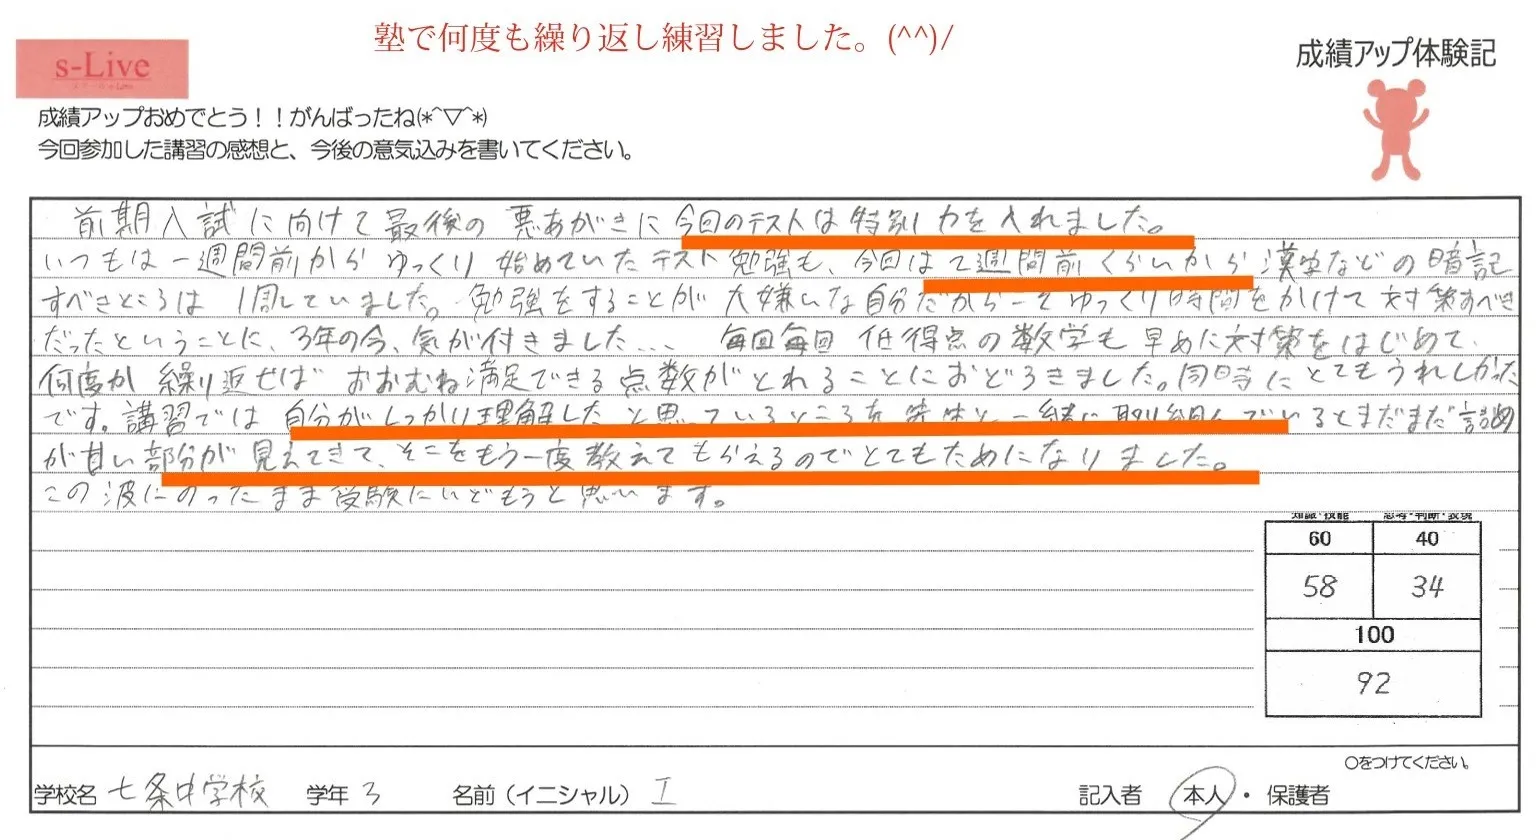 塾で何度も繰り返し練習しました。(^^)/
s-Live
成績アップ体験記
成績アップおめでとう！！がんばったね(*^▽^*)
今回参加した講習の感想と、今後の意気込みを書いてください。
前期入試に向けて最後の悪あがきに今回のテストは特別力を入れました。
いつもは一週間前からゆっくり始めていたテスト勉強も、今回は2週間前くらいから漢字などの暗記
すべきところは1周していました。勉強をすることが大嫌いな自分だからこそゆっくり時間をかけて対策すべき
だったということに、3年の今、気が付きました... 毎回毎回低得点の数学も早めに対策をはじめて、
何度か繰り返せばおおむね満足できる点数がとれることにおどろきました。同時にとてもうれしかった
です。講習では自分がしっかり理解したと思っているところを先生と一緒に取り組んでいるとまだまだ詰め
が甘い部分が見えてきて、そこをもう一度教えてもらえるのでとてもためになりました。
この波にのったまま受験にいどもうと思います。
知識・技能 思考・判断・表現
60 40
58 34
100
92
○をつけてください。
学校名 七条中学校 学年 3 名前（イニシャル） I 記入者 本人・保護者